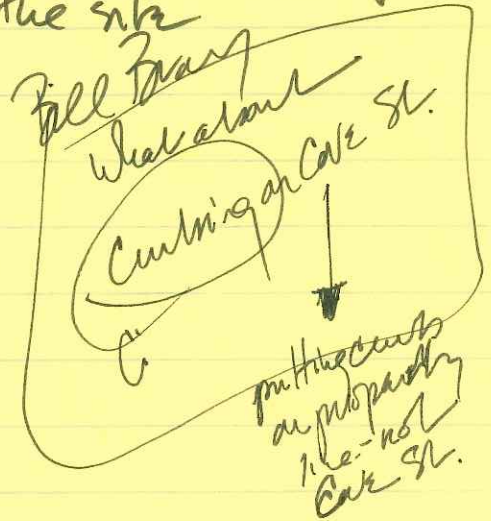 the site
Bill Bray
What about
Curbing on Cove St.
putting curb
on property
line - not
Cove St.